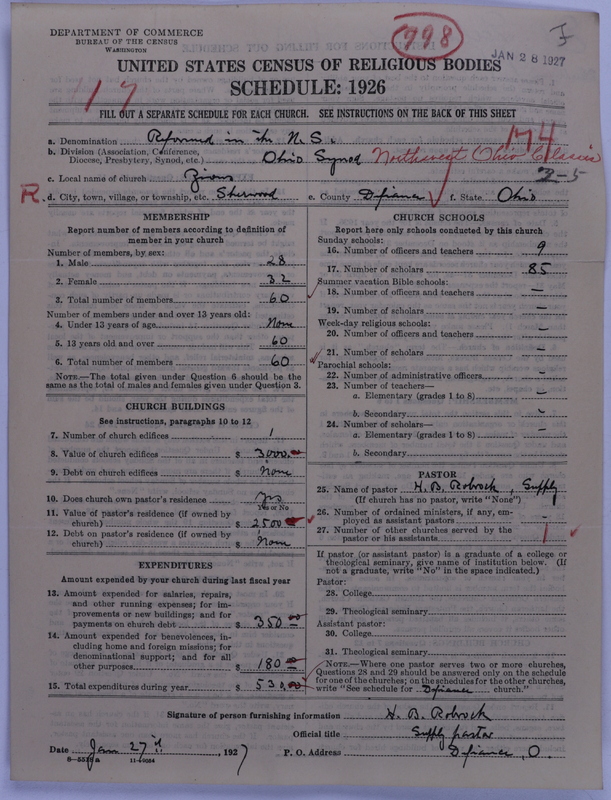 DEPARTMENT OF COMMERCE
BUREAU OF THE CENSUS
WASHINGTON
798
JAN 28 1927
UNITED STATES CENSUS OF RELIGIOUS BODIES
SCHEDULE: 1926
17
FILL OUT A SEPARATE SCHEDULE FOR EACH CHURCH. SEE INSTRUCTIONS ON THE BACK OF THIS SHEET
a. Denomination Reformed in the U.S.
174
b. Division (Association, Conference, Diocese, Presbytery, Synod, etc.) Ohio Synod Northwest Ohio Classis
c. Local name of church Zions
3-5
R. d. City, town, village, or township, etc. Sherwood e. County Defiance f. State Ohio
MEMBERSHIP
Report number of members according to definition of
member in your church
Number of members, by sex:
1. Male 28
2. Female 32
3. Total number of members 60
Number of members under and over 13 years old:
4. Under 13 years of age None
5. 13 years old and over 60
6. Total number of members 60
NOTE.—The total given under Question 6 should be the
same as the total of males and females given under Question 3.
CHURCH BUILDINGS
See instructions, paragraphs 10 to 12
7. Number of church edifices 1
8. Value of church edifices $ 3000.00
9. Debt on church edifices $ None
10. Does church own pastor's residence? Yes
Yes or No
11. Value of pastor's residence (if owned by
church) $ 2500.00
12. Debt on pastor's residence (if owned by
church) $ None
EXPENDITURES
Amount expended by your church during last fiscal year
13. Amount expended for salaries, repairs,
and other running expenses; for im-
provements or new buildings; and for
payments on church debt $ 350.00
14. Amount expended for benevolences, in-
cluding home and foreign missions; for
denominational support; and for all
other purposes $ 180.00
15. Total expenditures during year $ 530.00
CHURCH SCHOOLS
Report here only schools conducted by this church
Sunday schools:
16. Number of officers and teachers 9
17. Number of scholars 85
Summer vacation Bible schools:
18. Number of officers and teachers —
19. Number of scholars —
Week-day religious schools:
20. Number of officers and teachers —
21. Number of scholars —
Parochial schools:
22. Number of administrative officers —
23. Number of teachers—
a. Elementary (grades 1 to 8) —
b. Secondary —
24. Number of scholars—
a. Elementary (grades 1 to 8) —
b. Secondary
PASTOR
25. Name of pastor H. B. Robrock, Supply
(If church has no pastor, write "None")
26. Number of ordained ministers, if any, em-
ployed as assistant pastors —
27. Number of other churches served by the
pastor or his assistants 1
If pastor (or assistant pastor) is a graduate of a college or
theological seminary, give name of institution below. (If
not a graduate, write "No" in the space indicated.)
Pastor:
28. College
29. Theological seminary
Assistant pastor:
30. College
31. Theological seminary
NOTE.—Where one pastor serves two or more churches,
Questions 28 and 29 should be answered only on the schedule
for one of the churches; on the schedules for the other churches,
write "See schedule for Defiance church."
Signature of person furnishing information H. B. Robrock
Official title Supply pastor
Date Jan 27th 1927 P. O. Address Defiance, O.